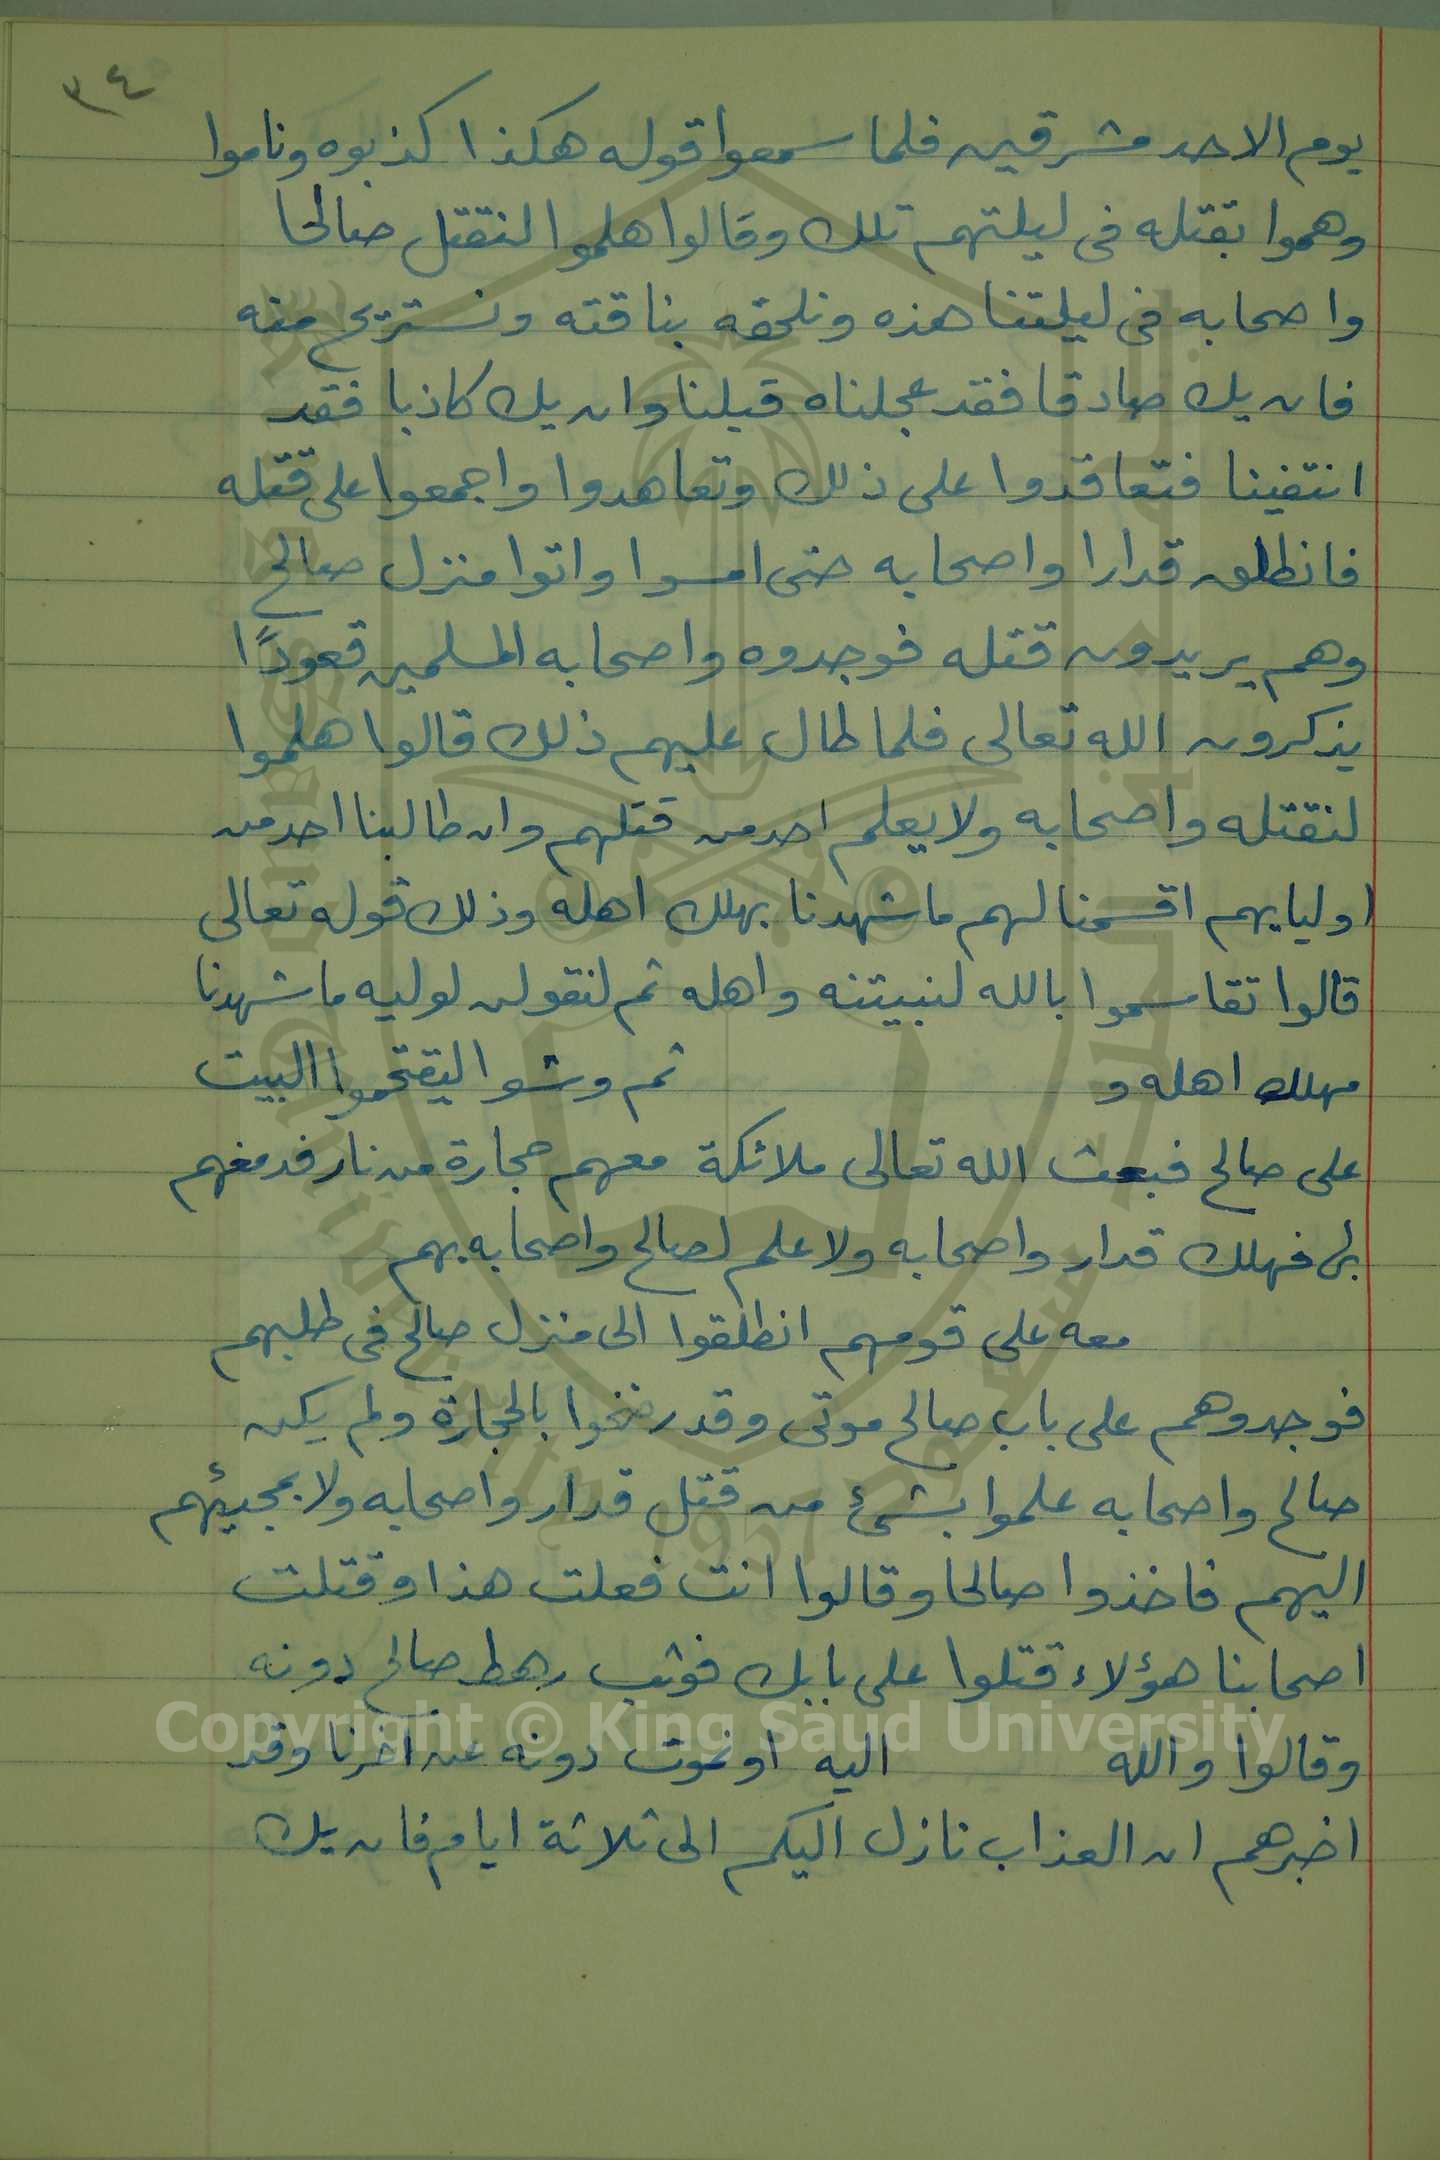 ٣٤
يوم الاحد مشرقين فلما سمعوا قوله هكذا كذبوه وناموا
وهموا بقتله فى ليلتهم تلك وقالوا هلموا لنقتل صالحا
واصحابه فى ليلتنا هذه ونلحقه بناقته ونستريح منه
فان يك صادقا فقد عجلناه قبلنا وان يك كاذبا فقد
انتفينا فتعاقدوا على ذلك وتعاهدوا واجمعوا على قتله
فانطلق قدارا واصحابه حتى امسوا واتوا منزل صالح
وهم يريدون قتله فوجدوه واصحابه المسلمين قعودًا
يذكرون الله تعالى فلما طال عليهم ذلك قالوا هلموا
لنقتله واصحابه ولا يعلم احد من قتلهم وان طالبنا احد من
اوليايهم اقسمنا لهم ما شهدنا بهلك اهله وذلك قوله تعالى
قالوا تقاسموا بالله لنبيتنه واهله ثم لنقولن لوليه ما شهدنا
مهلك اهله و ثم وشوا ليقتحموا البيت
على صالح فبعث الله تعالى ملائكة معهم حجارة من نار فدمغهم
فهلك قدار واصحابه ولا علم لصالح واصحابه بهم
معه على قومهم انطلقوا الى منزل صالح فى طلبهم
فوجدوهم على باب صالح موتى وقد رضخوا بالحجارة ولم يكن
صالح واصحابه علموا بشئ من قتل قدار واصحابه ولا بمجيئهم
اليهم فاخذوا صالحا وقالوا انت فعلت هذا وقتلت
اصحابنا هؤلاء قتلوا على بابك فوثب رهط صالح دونه
وقالوا والله اليه او نموت دونه عن اخرنا وقد
اخبرهم ان العذاب نازل اليكم الى ثلاثة ايام فان يك
Copyright © King Saud University